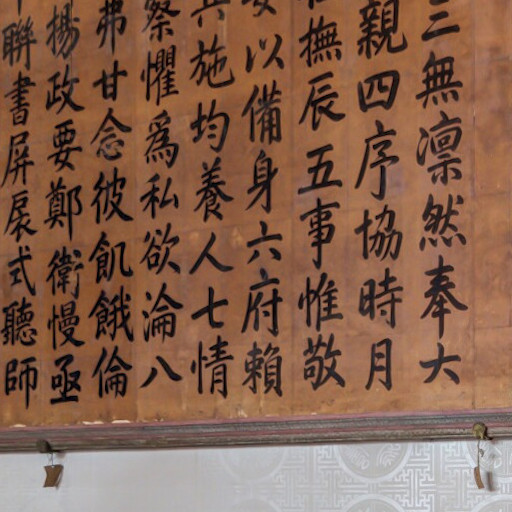 三無凛然奉大
親四序協時月
撫辰五事惟敬
以備身六府賴
兵施均養人七情
察懼為私欲淪八
弗甘念彼飢餓倫
揚政要鄭衛慢亟
聯書屏扆式聽師